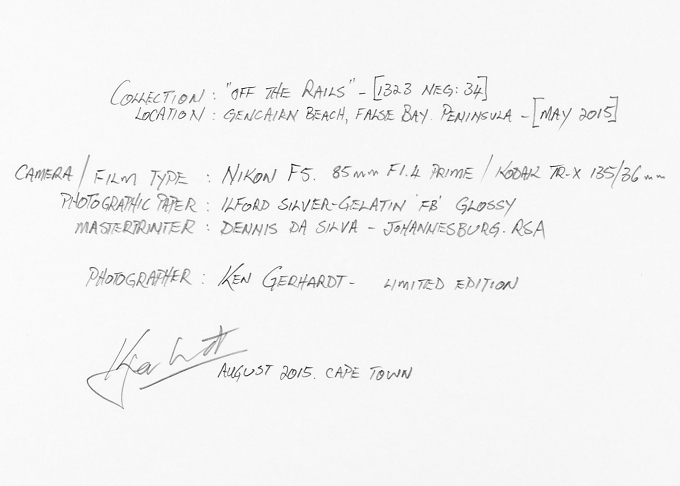 COLLECTION : "OFF THE RAILS" - [1323 NEG: 34]
LOCATION : GENCAIRN BEACH, FALSE BAY. PENINSULA - [MAY 2015]
CAMERA / FILM TYPE : NIKON F5. 85mm F1.4 PRIME / KODAK TR-X 135/36mm
PHOTOGRAPHIC PAPER : ILFORD SILVER-GELATIN 'FB' GLOSSY
MASTERPRINTER : DENNIS DA SILVA - JOHANNESBURG. RSA
PHOTOGRAPHER : KEN GERHARDT - LIMITED EDITION
AUGUST 2015. CAPE TOWN